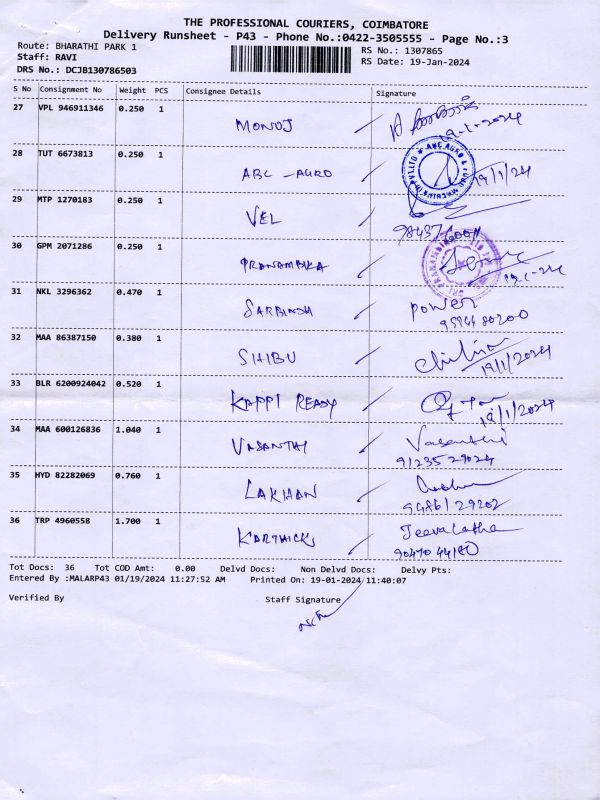 THE PROFESSIONAL COURIERS, COIMBATORE
Delivery Runsheet - P43 - Phone No.:0422-3505555 - Page No.:3
Route: BHARATHI PARK 1 RS No.: 1307865
Staff: RAVI RS Date: 19-Jan-2024
DRS No.: DCJB130786503
S No Consignment No Weight PCS Consignee Details Signature
27 VPL 946911346 0.250 1 MONOJ
19-1-2024
28 TUT 6673813 0.250 1 ABC - AGRO 19/1/24
29 MTP 1270183 0.250 1 VEL
30 GPM 2071286 0.250 1 PRANAMBIKA
19-1-24
31 NKL 3296362 0.470 1 power
32 MAA 86387150 0.380 1 SHIBU
19/1/2024
33 BLR 6200924042 0.520 1 KAPPI READY
19/1/2024
34 MAA 600126836 1.040 1 VASANTHI Vasanthi
91235 29024
35 HYD 82282069 0.760 1 LAKHAN
36 TRP 4960558 1.700 1 KARTHICK Jeevalatha
90470 44180
Tot Docs: 36 Tot COD Amt: 0.00 Delvd Docs: Non Delvd Docs: Delvy Pts:
Entered By :MALARP43 01/19/2024 11:27:52 AM Printed On: 19-01-2024 11:40:07
Verified By Staff Signature